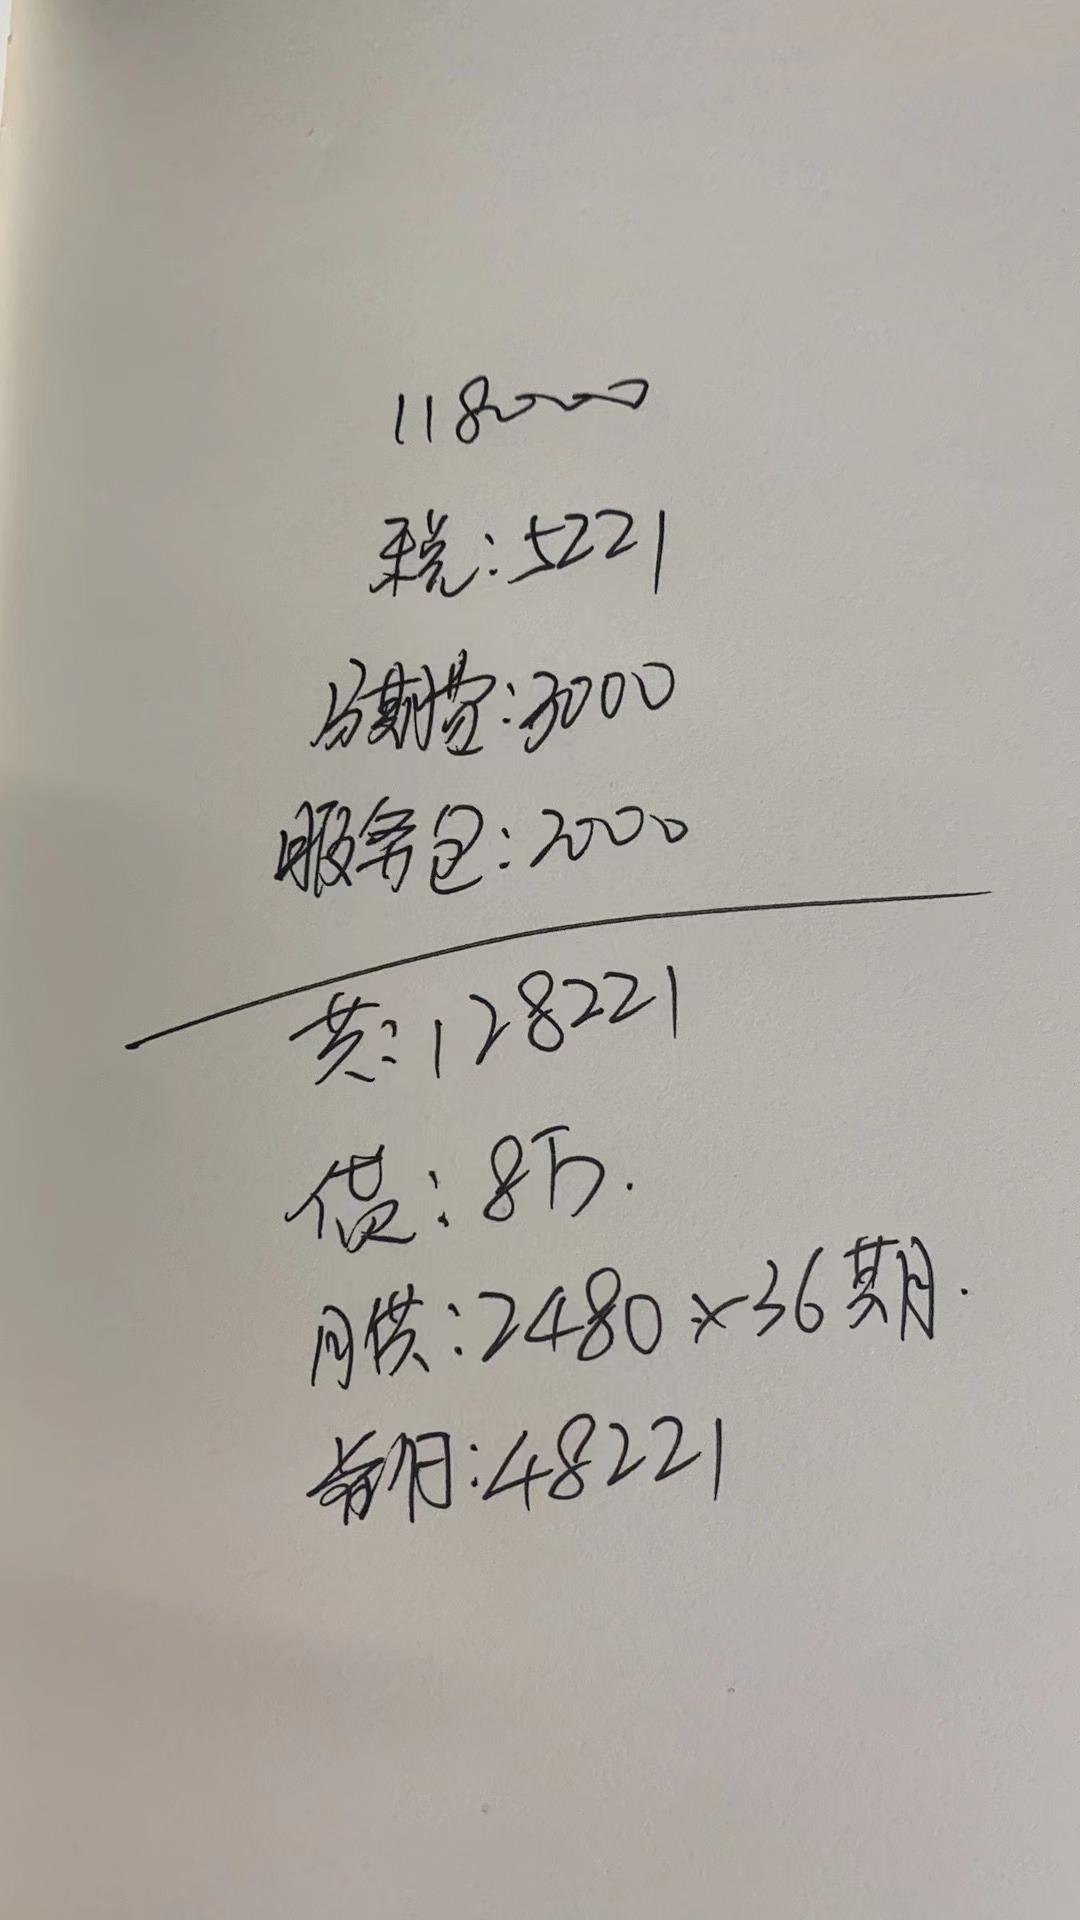 118000
税:5221
分期费:3000
服务包:2000
共:128221
贷:8万.
月供:2480×36期.
首月:48221